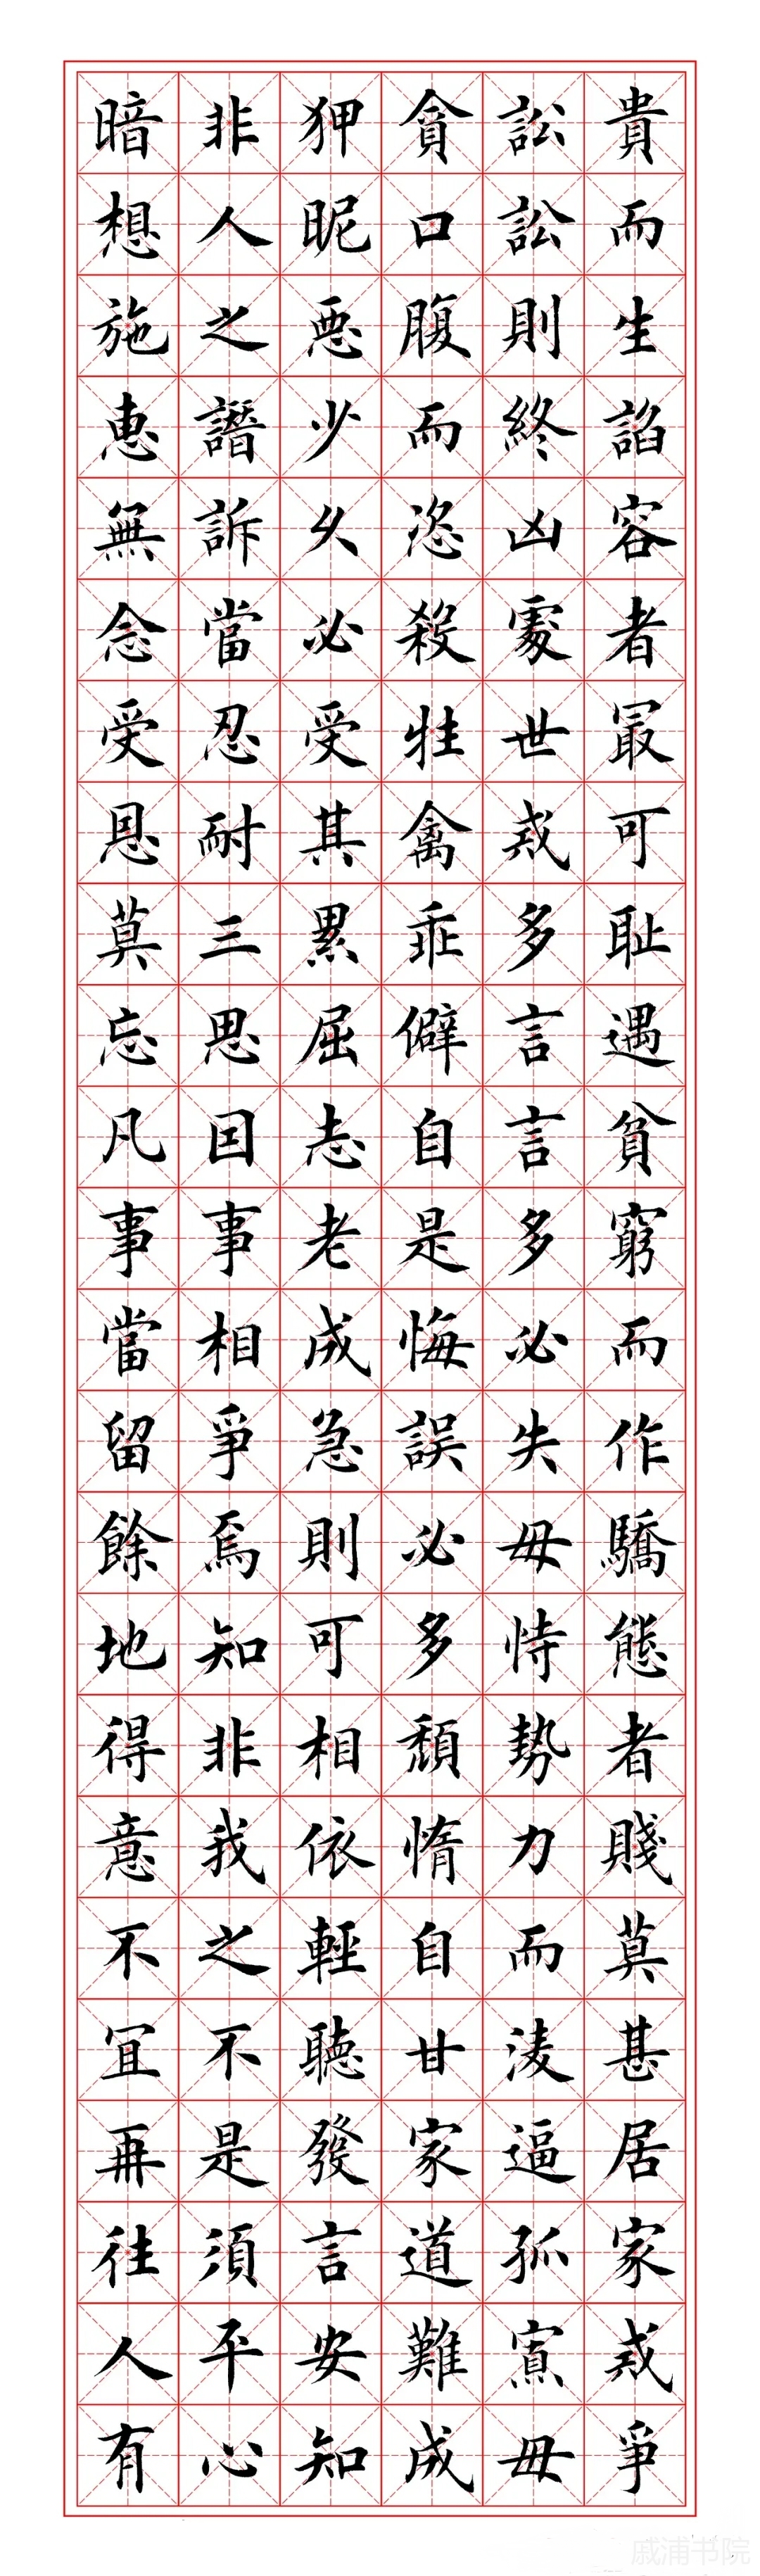 貴而生諂容者最可恥遇貧窮而作驕態者賤莫甚居家戒爭
訟訟則終凶處世戒多言言多必失毋恃勢力而凌逼孤寡毋
貪口腹而恣殺牲禽乖僻自是悔誤必多頹惰自甘家道難成
狎昵惡少久必受其累屈志老成急則可相依輕聽發言安知
非人之譖訴當忍耐三思因事相爭焉知非我之不是須平心
暗想施惠無念受恩莫忘凡事當留餘地得意不宜再往人有
戚浦书院